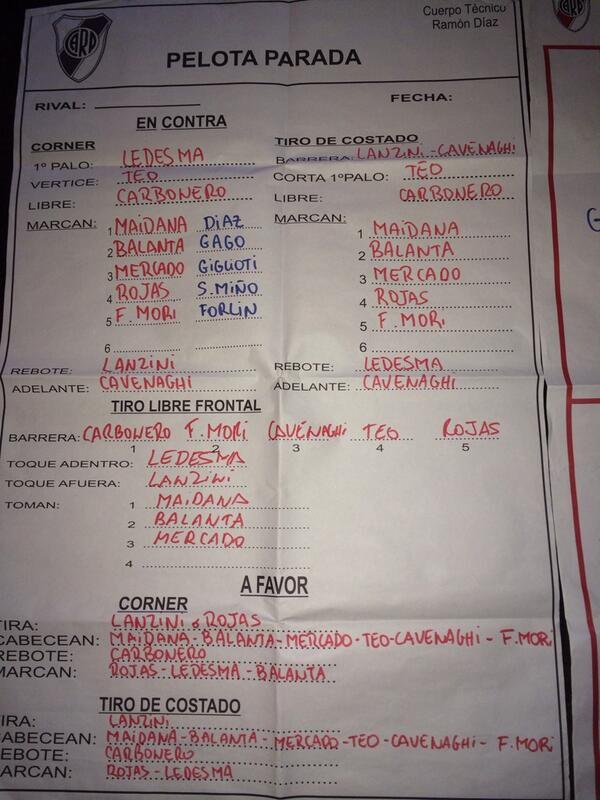 CARP
Cuerpo Técnico
Ramón Díaz
PELOTA PARADA
RIVAL:
FECHA:
EN CONTRA
CORNER
1º PALO: LEDESMA
VERTICE: TEO
LIBRE: CARBONERO
MARCAN:
1 MAIDANA DIAZ
2 BALANTA GAGO
3 MERCADO GIGLIOTI
4 ROJAS S.MIÑO
5 F. MORI FORLIN
6
REBOTE: LANZINI
ADELANTE: CAVENAGHI
TIRO DE COSTADO
BARRERA: LANZINI - CAVENAGHI
CORTA 1ºPALO: TEO
LIBRE: CARBONERO
MARCAN:
1 MAIDANA
2 BALANTA
3 MERCADO
4 ROJAS
5 F. MORI
6
REBOTE: LEDESMA
ADELANTE: CAVENAGHI
TIRO LIBRE FRONTAL
BARRERA: CARBONERO F. MORI CAVENAGHI TEO ROJAS
1 2 3 4 5
TOQUE ADENTRO: LEDESMA
TOQUE AFUERA: LANZINI
TOMAN: 1 MAIDANA
2 BALANTA
3 MERCADO
4
A FAVOR
CORNER
TIRA: LANZINI o ROJAS
CABECEAN: MAIDANA - BALANTA - MERCADO - TEO - CAVENAGHI - F. MORI
REBOTE: CARBONERO
MARCAN: ROJAS - LEDESMA - BALANTA
TIRO DE COSTADO
TIRA: LANZINI
CABECEAN: MAIDANA - BALANTA - MERCADO - TEO - CAVENAGHI - F. MORI
REBOTE: CARBONERO
MARCAN: ROJAS - LEDESMA